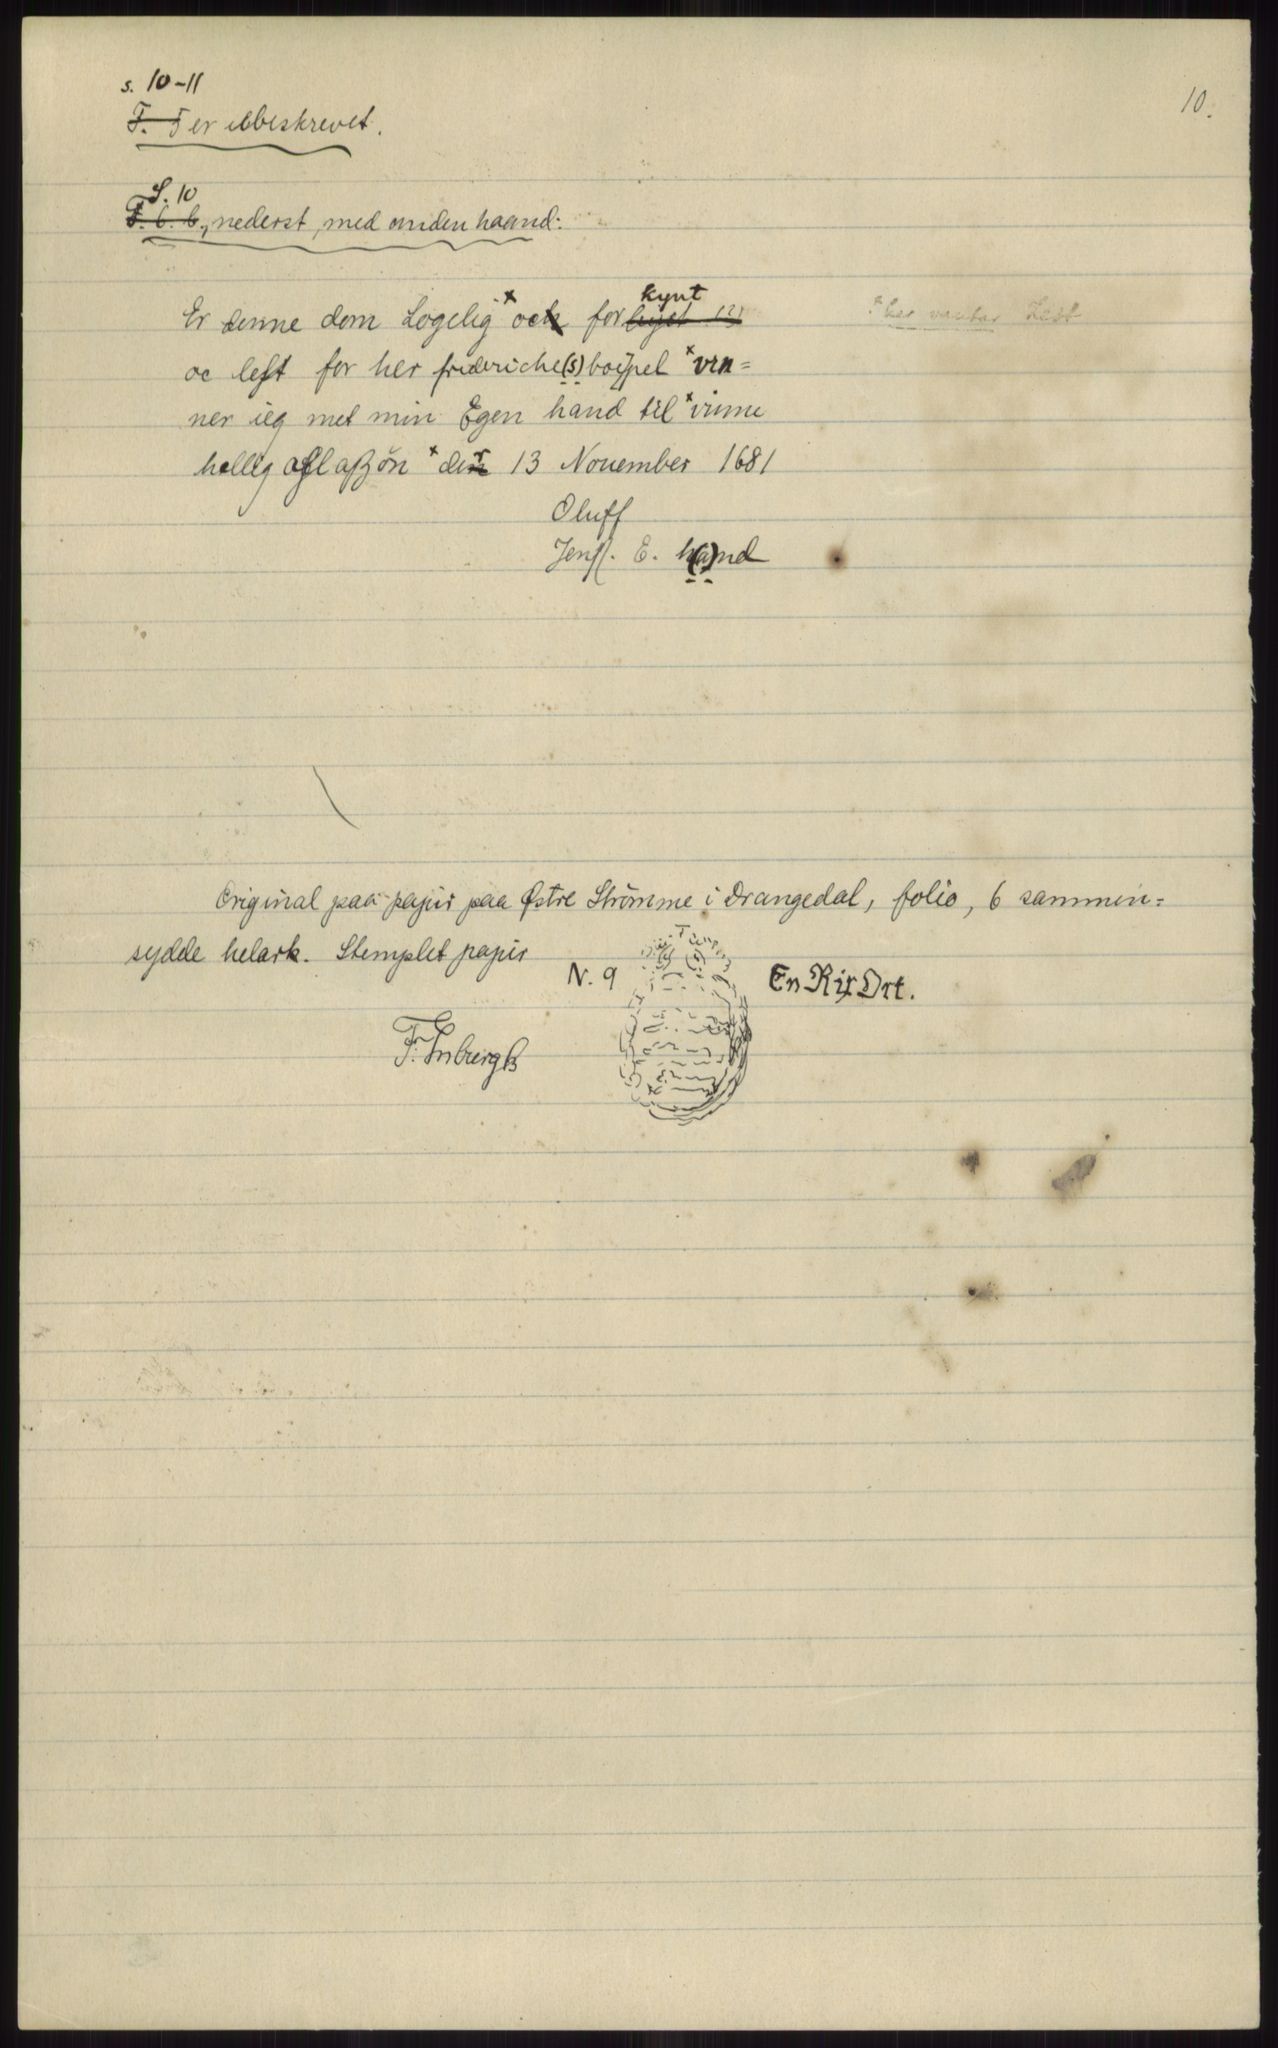 s. 10-11
10.
F. 7 er ubeskrevet.
S. 10
F. 6. b., nederst, med anden haand:
kynt
Er denne dom Logelig x och for lyst (?)
x her vantar Lest
oc lest for her frideriche(s) boÿpel x ven=
ner ieg met min Egen hand til x vinne
hellig aflaßön x den 13 Nouember 1681
Oluff
Jenß. E. h(a)nd
Original paa papir paa Østre Strömme i Drangedal, folio, 6 sammen=
sydde helark. Stemplet papir
N. 9
En Rix Ort.